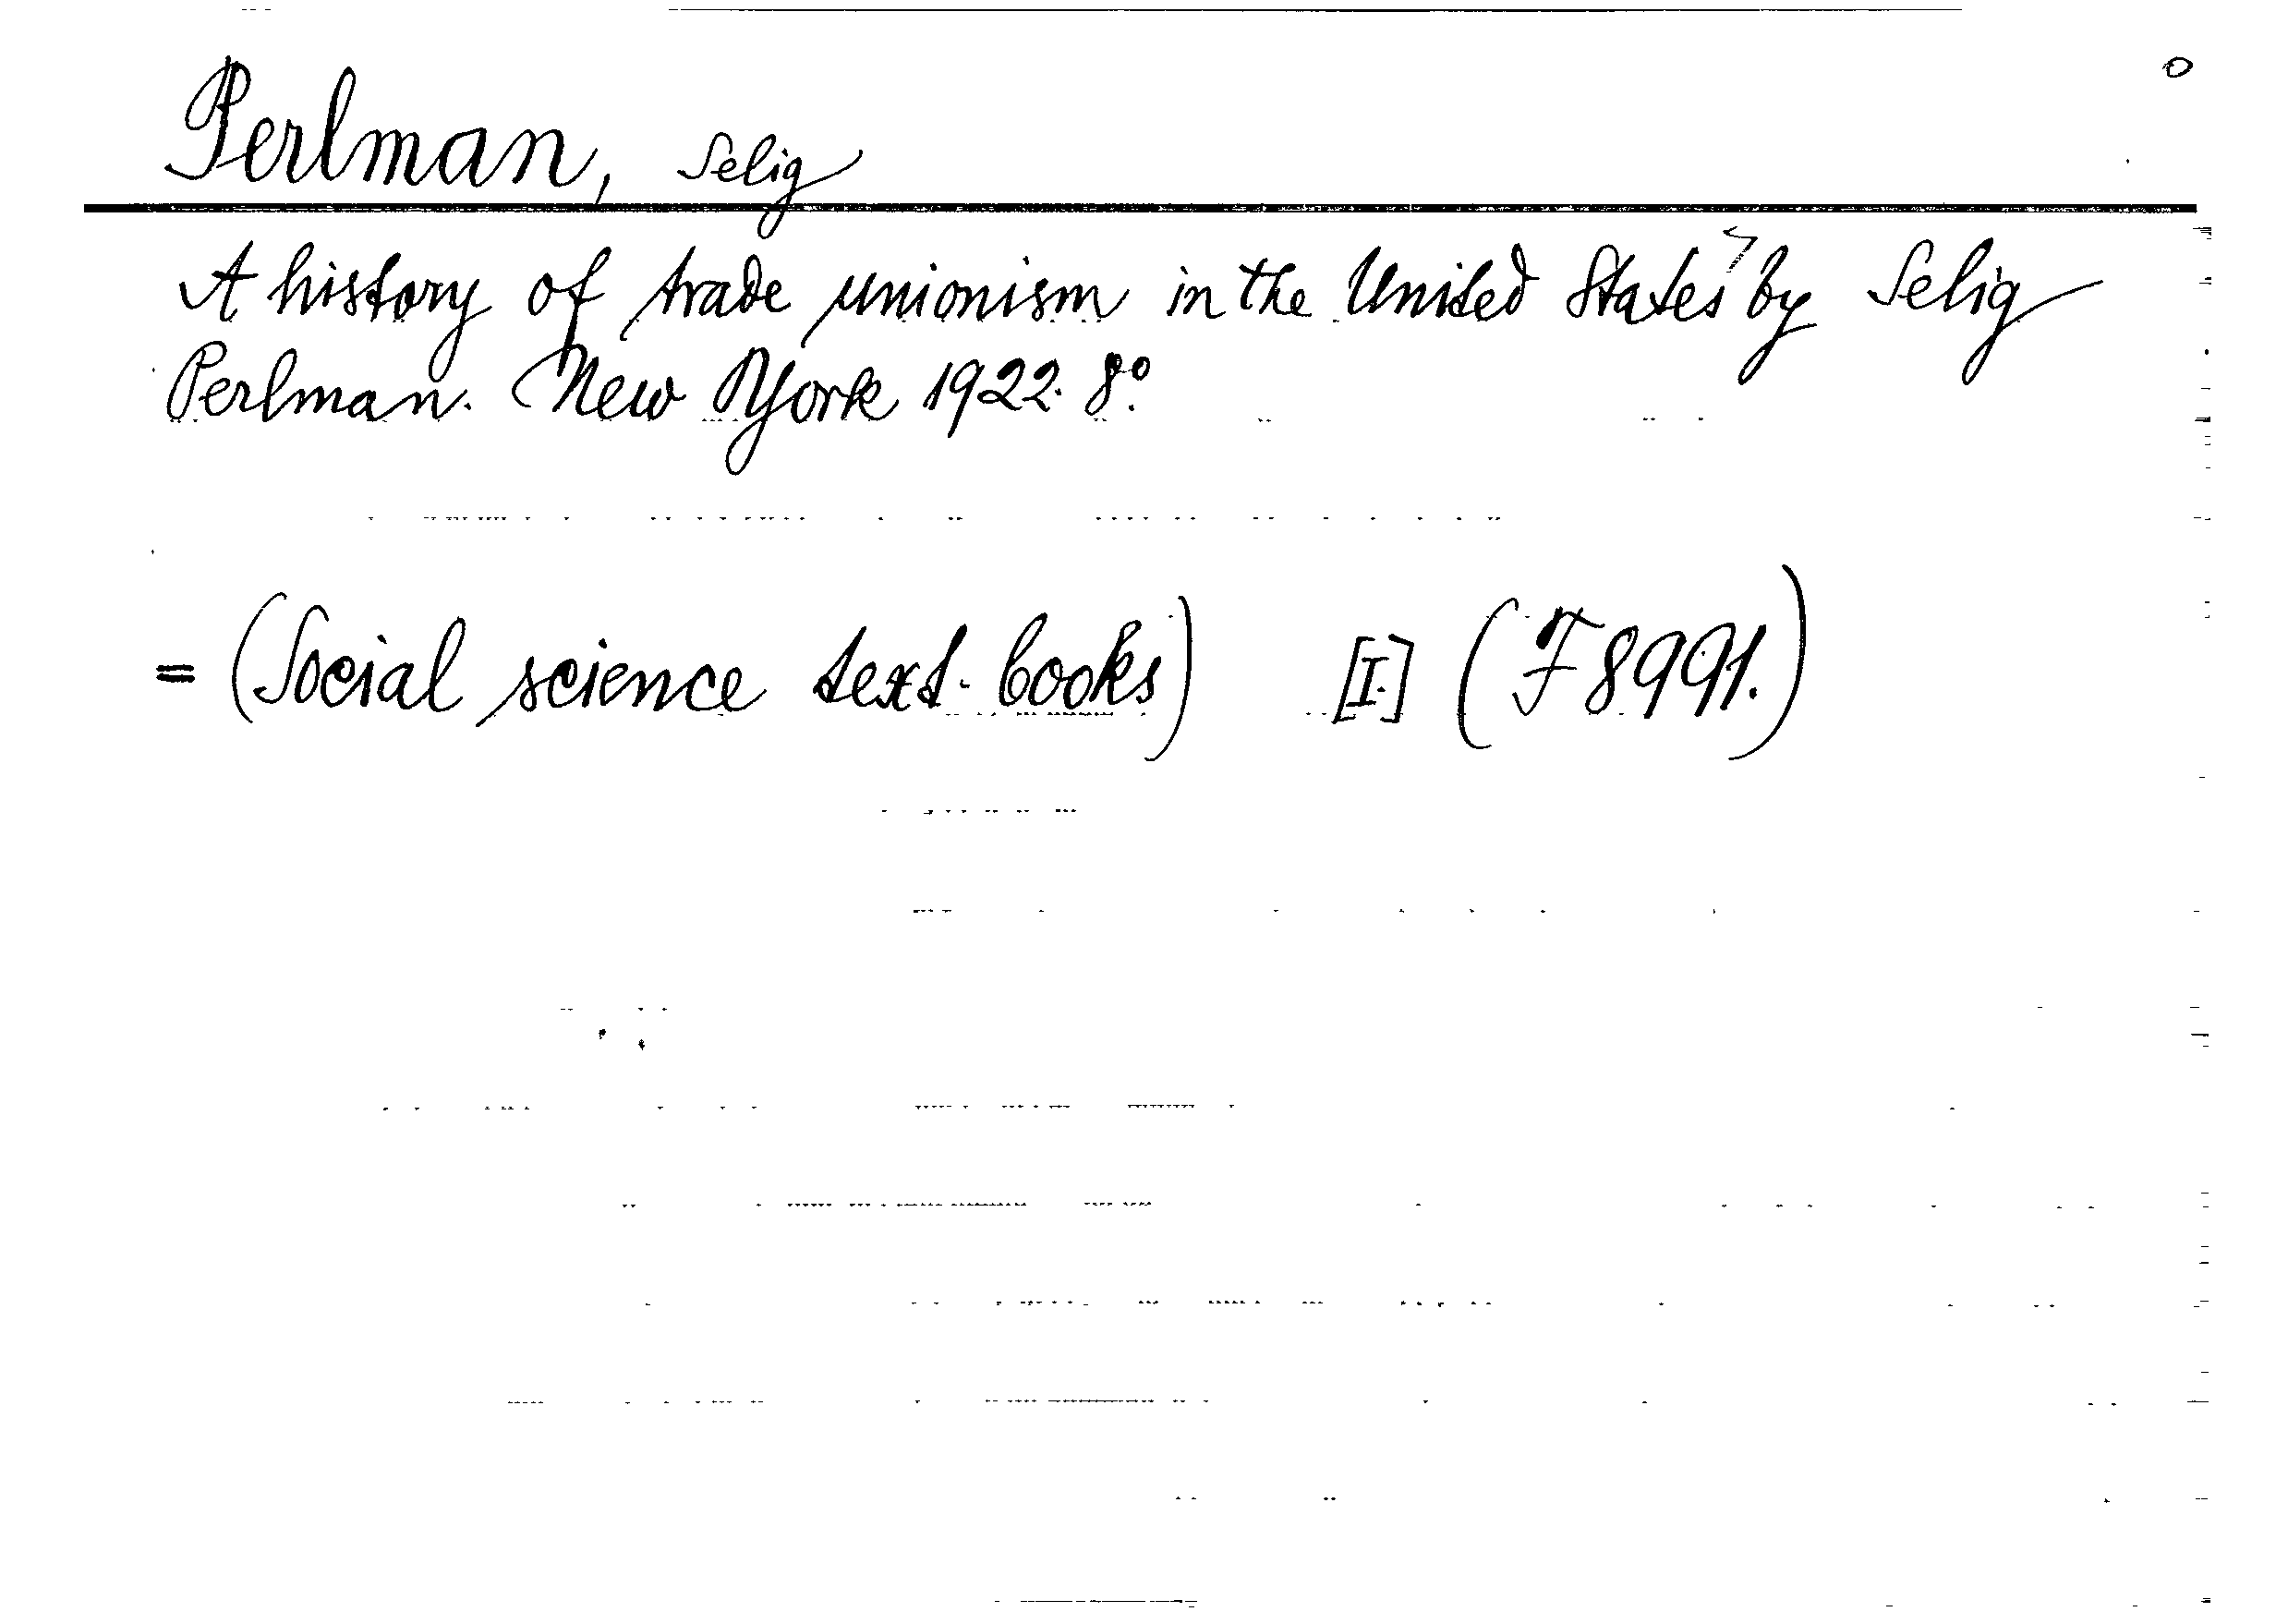 Perlman, Selig
A history of trade unionism in the United States by Selig
Perlman. New York 1922. 8°.
= (Social science text-books) [I.] (F 8991.)